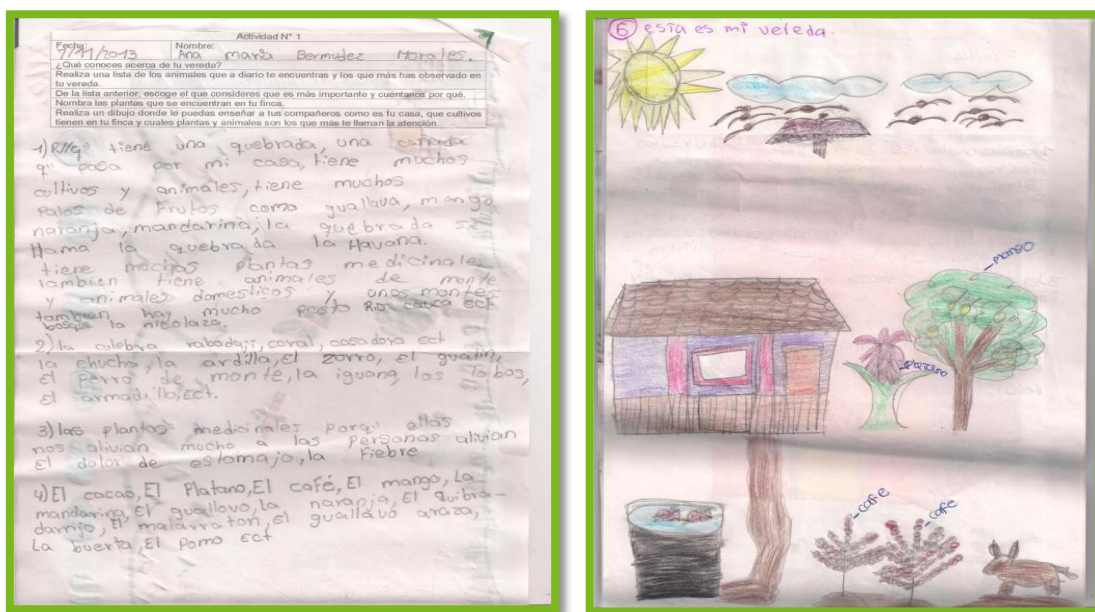 Actividad N° 1
Fecha: 7/11/2013 Nombre: Ana maria Bermudez Morales.
¿Qué conoces acerca de tu vereda?
Realiza una lista de los animales que a diario te encuentras y los que más has observado en
tu vereda.
De la lista anterior, escoge el que consideres que es más importante y cuéntanos por qué.
Nombra las plantas que se encuentran en tu finca.
Realiza un dibujo donde le puedas enseñar a tus compañeros como es tu casa, que cultivos
tienen en tu finca y cuales plantas y animales son los que más te llaman la atención.
1) R//q" tiene una quebrada, una cañada
q" pasa por mi casa, tiene muchos
cultivos y animales, tiene muchos
palos de frutos como guallava, mango
naranja, mandarina; la quebrada se
llama la quebrada la Havana.
tiene muchas plantas medicinales
tambien tiene animales de monte
y animales domesticos y unos montes
tambien hay mucho pasto Rio cauca ect
bosque la nicolaza.
2) la culebra rabodaji, coral, casadora ect
la chucha, la ardilla, El zorro, el guatin,
El perro de monte, la iguana, los lobos,
El armadillo, Ect.
3) las plantas medicinales porq" ellas
nos alivian mucho a las personas alivian
El dolor de estomajo, la fiebre
4) El cacao, El Platano, El café, El mango, La
mandarina, El guallavo, la naranja, El quibra-
darrijo, El matarraton, El guallavo araza,
La buerta, El pomo Ect
6 esta es mi vereda.
mango
platano
cafe
cafe